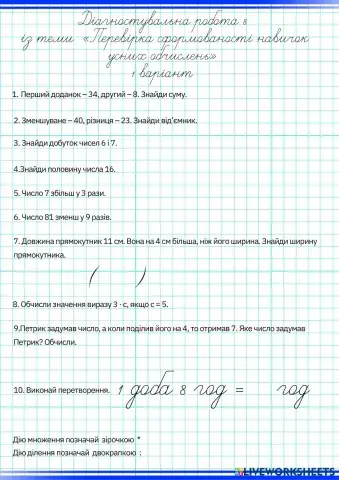 Діагностувальна робота 8
із теми «Перевірка сформованості навичок
усних обчислень»
1 варіант
1. Перший доданок – 34, другий – 8. Знайди суму.
2. Зменшуване – 40, різниця – 23. Знайди від'ємник.
3. Знайди добуток чисел 6 і 7.
4.Знайди половину числа 16.
5. Число 7 збільш у 3 рази.
6. Число 81 зменш у 9 разів.
7. Довжина прямокутник 11 см. Вона на 4 см більша, ніж його ширина. Знайди ширину
прямокутника.
( )
8. Обчисли значення виразу 3 · с, якщо с = 5.
9.Петрик задумав число, а коли поділив його на 4, то отримав 7. Яке число задумав
Петрик? Обчисли.
10. Виконай перетворення. 1 доба 8 год = год
Дію множення позначай зірочкою *
Дію ділення позначай двокрапкою :
LIVEWORKSHEETS